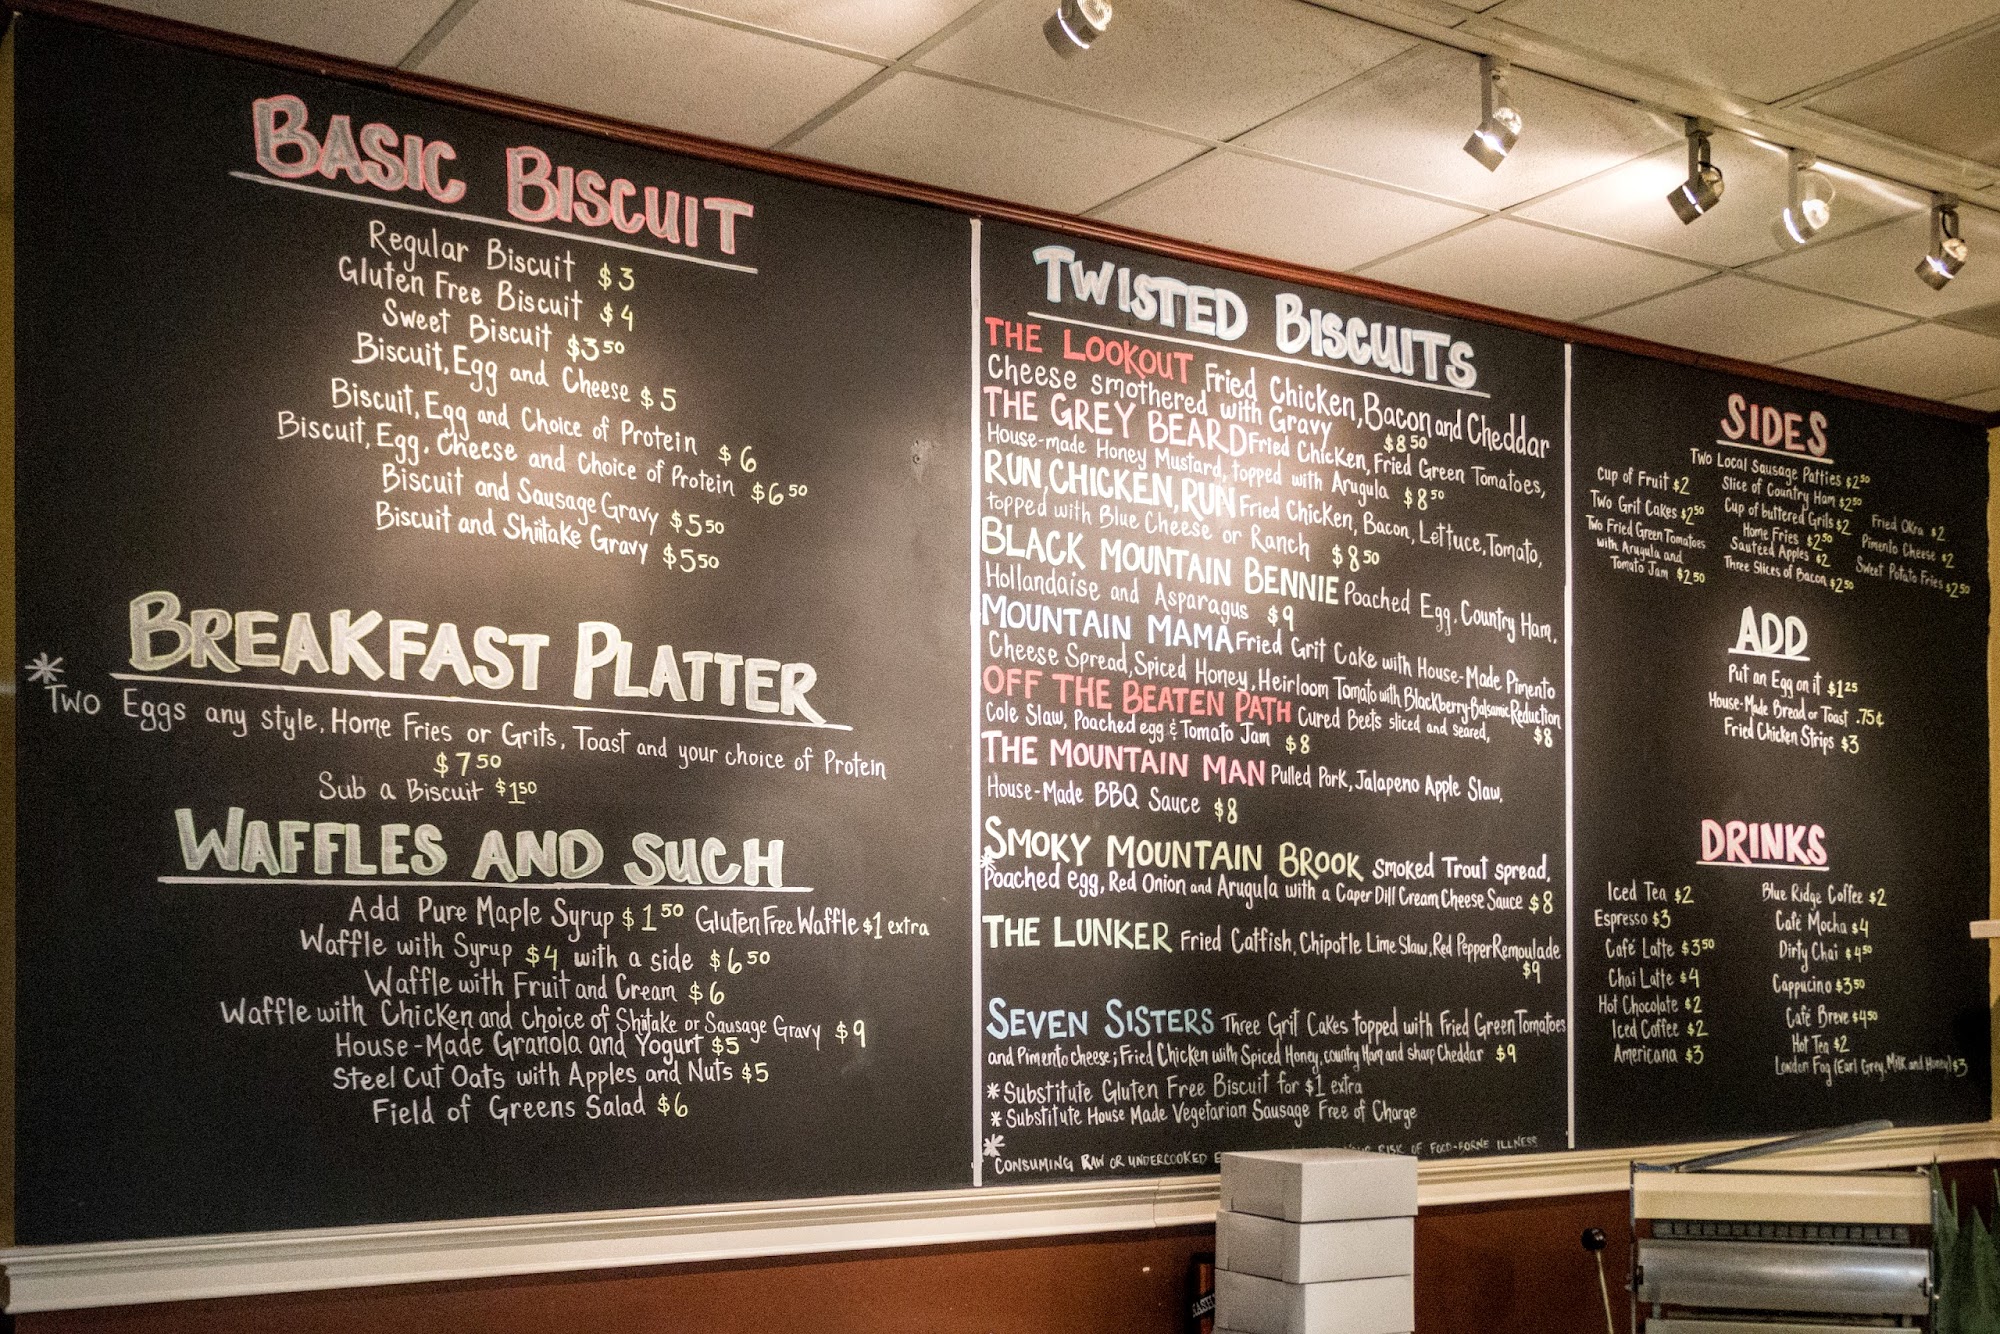 BASIC BISCUIT
Regular Biscuit $3
Gluten Free Biscuit $4
Sweet Biscuit $3 50
Biscuit, Egg and Cheese $5
Biscuit, Egg and Choice of Protein $6
Biscuit, Egg, Cheese and Choice of Protein $6 50
Biscuit and Sausage Gravy $5 50
Biscuit and Shiitake Gravy $5 50
BREAKFAST PLATTER
* Two Eggs any style, Home Fries or Grits, Toast and your choice of Protein
$7 50
Sub a Biscuit $1 50
WAFFLES AND SUCH
Add Pure Maple Syrup $1 50 Gluten Free Waffle $1 extra
Waffle with Syrup $4 with a side $6 50
Waffle with Fruit and Cream $6
Waffle with Chicken and choice of Shiitake or Sausage Gravy $9
House-Made Granola and Yogurt $5
Steel Cut Oats with Apples and Nuts $5
Field of Greens Salad $6
TWISTED BISCUITS
THE LOOKOUT Fried Chicken, Bacon and Cheddar
Cheese smothered with Gravy $8 50
THE GREY BEARD Fried Chicken, Fried Green Tomatoes,
House-made Honey Mustard, topped with Arugula $8 50
RUN, CHICKEN, RUN Fried Chicken, Bacon, Lettuce, Tomato,
topped with Blue Cheese or Ranch $8 50
BLACK MOUNTAIN BENNIE Poached Egg, Country Ham,
Hollandaise and Asparagus $9
MOUNTAIN MAMA Fried Grit Cake with House-Made Pimento
Cheese Spread, Spiced Honey, Heirloom Tomato with Blackberry-Balsamic Reduction
$8
OFF THE BEATEN PATH Cured Beets sliced and seared,
Cole Slaw, Poached egg & Tomato Jam $8
THE MOUNTAIN MAN Pulled Pork, Jalapeno Apple Slaw,
House-Made BBQ Sauce $8
SMOKY MOUNTAIN BROOK Smoked Trout spread,
* Poached egg, Red Onion and Arugula with a Caper Dill Cream Cheese Sauce $8
THE LUNKER Fried Catfish, Chipotle Lime Slaw, Red Pepper Remoulade
$9
SEVEN SISTERS Three Grit Cakes topped with Fried Green Tomatoes
and Pimento cheese; Fried Chicken with Spiced Honey, country Ham and sharp Cheddar $9
* Substitute Gluten Free Biscuit for $1 extra
* Substitute House Made Vegetarian Sausage Free of Charge
* CONSUMING RAW OR UNDERCOOKED RISK OF FOOD-BORNE ILLNESS
SIDES
Two Local Sausage Patties $2 50
Cup of Fruit $2
Two Grit Cakes $2 50
Two Fried Green Tomatoes
with Arugula and
Tomato Jam $2 50
Slice of Country Ham $2 50
Cup of buttered Grits $2
Home Fries $2 50
Sautéed Apples $2
Three Slices of Bacon $2 50
Fried Okra $2
Pimento Cheese $2
Sweet Potato Fries $2 50
ADD
Put an Egg on it $1 25
House-Made Bread or Toast .75¢
Fried Chicken Strips $3
DRINKS
Iced Tea $2
Espresso $3
Café Latte $3 50
Chai Latte $4
Hot Chocolate $2
Iced Coffee $2
Americana $3
Blue Ridge Coffee $2
Café Mocha $4
Dirty Chai $4 50
Cappucino $3 50
Café Breve $4 50
Hot Tea $2
London Fog (Earl Grey, Milk and Honey) $3